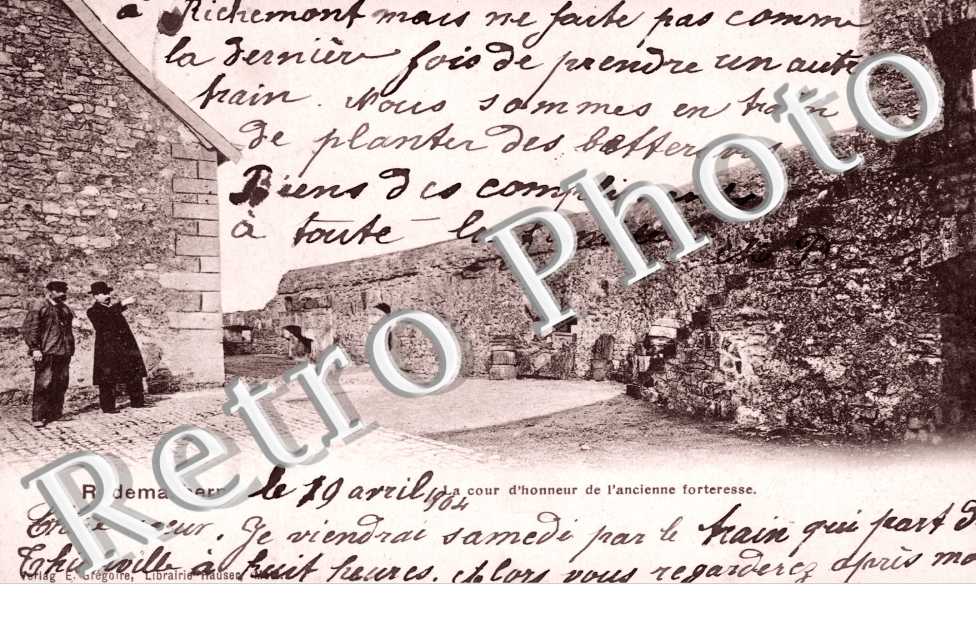 à Richemont mais ne faite pas comme
la dernière fois de prendre un autre
train. Nous sommes en train
de planter des betteraves
Biens des compli
à toute la famille
Retro Photo
le 19 avril 1904
La cour d'honneur de l'ancienne forteresse.
Chère soeur. Je viendrai samedi par le train qui part d
Thionville à huit heures. Alors vous regarderez après mo
Verlag E. Grégoire, Librairie Hausen,